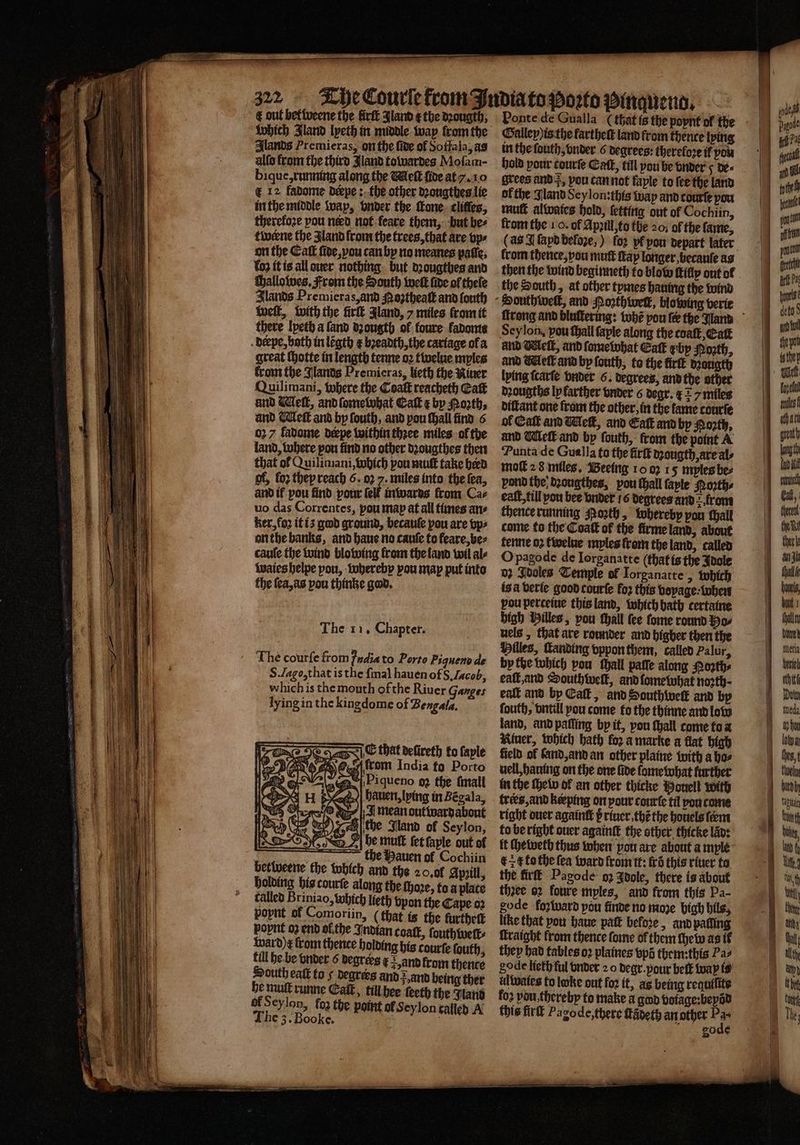 322 The Course from India to Porto Pinqueno.
& out betweene the first Iland & the drougth,
which Iland lyeth in middle way from the
Ilands Premieras, on the side of Soffala, as
also from the third Iland towardes Mosam-
bique, running along the West side at 7.10
& 12 fadome déepe: the other drougthes lie
in the middle way, vnder the stone cliffes,
therefore you néed not feare them, but be-
twéene the Iland from the trees, that are vp-
on the East side, you can by no meanes passe,
for it is all ouer nothing but drougthes and
shallowes. From the South west side of these
Ilands Premieras, and Northeast and south
west, with the first Iland, 7 miles from it
there lyeth a sand drougth of foure fadome
déepe, both in lēgth & breadth, the cariage of a
great shotte in length tenne or twelue myles
from the Ilands Premieras, lieth the Riuer
Quilimani, where the Coast reacheth East
and West, and somewhat East & by North,
and West and by south, and you shall find 6
or 7 fadome déepe within thrée miles of the
land, where you find no other drougthes then
that of Quilimani, which you must take héed
of, for they reach 6. or 7. miles into the sea,
and if you find your self inwards from Ca-
uo das Correntes, you may at all times an-
ker, for it is good ground, because you are vp-
on the banks, and haue no cause to feare, be-
cause the wind blowing from the land wil al-
waies helpe you, whereby you may put into
the sea, as you thinke good.
The 11, Chapter.
The course from India to Porto Piqueno de
S. Iago, that is the smal hauen of S. Iacob,
which is the mouth of the Riuer Ganges
lying in the kingdome of Bengala.
HE that desireth to sayle
from India to Porto
Piqueno or the small
hauen, lying in Bēgala,
I mean outward about
the Iland of Seylon,
he must set sayle out of
the Hauen of Cochiin
betweene the which and the 20. of Aprill,
holding his course along the shore, to a place
called Briniao, which lieth vpon the Cape or
poynt of Comoriin, (that is the furthest
poynt or end of the Indian coast, southwest-
ward) & from thence holding his course south,
till he be vnder 6 degrées & ½, and from thence
South east to 5 degrées and ½, and being ther
he must runne East, till hee seeth the Iland
of Seylon, for the point of Seylon called A
The 3. Booke.
Ponte de Gualla (that is the poynt of the
Galley) is the farthest land from thence lying
in the south, vnder 6 degrees: therefore if you
hold your course East, till you be vnder 5 de-
grees and ½, you can not sayle to see the land
of the Iland Seylon: this way and course you
must alwaies hold, setting out of Cochiin,
from the 10. of Aprill, to the 20, of the same,
(as I sayd before,) for yf you depart later
from thence, you must stay longer, because as
then the wind beginneth to blow stifly out of
the South, at other tymes hauing the wind
Southwest, and Northwest, blowing verie
strong and blustering: whē you sée the Iland
Seylon, you shall sayle along the coast, East
and West, and somewhat East & by North,
and West and by south, to the first drougth
lying scarse vnder 6. degrees, and the other
drougthes ly farther vnder 6 degr. & ½ 7 miles
distant one from the other, in the same course
of East and West, and East and by North,
and West and by south, from the point A
Punta de Gualla to the first drougth, are al-
most 28 miles. Beeing 10 or 15 myles be-
yond the drougthes, you shall sayle North-
east, till you bee vnder 16 degrees and ½, from
thence running North, whereby you shall
come to the Coast of the firme land, about
tenne or twelue myles from the land, called
O pagode de Iorganatte (that is the Idole
or Idoles Temple of Iorganatte, which
is a verie good course for this voyage: when
you perceiue this land, which hath certaine
high Hilles, you shall see some round Ho-
uels, that are rounder and higher then the
Hilles, standing vppon them, called Palur,
by the which you shall passe along North-
east, and Southwest, and somewhat north-
east and by East, and Southwest and by
south, vntill you come to the thinne and low
land, and passing by it, you shall come to a
Riuer, which hath for a marke a flat high
field of sand, and an other plaine with a ho-
uell, hauing on the one side somewhat further
in the shew of an other thicke Houell with
trées, and kéeping on your course til you come
right ouer against ye riuer, thē the houels séem
to be right ouer against the other thicke lād:
it sheweth thus when you are about a myle
& ½ & to the sea ward from it: frō this riuer to
the first Pagode or Idole, there is about
thrée or foure myles, and from this Pa-
gode forward you finde no more high hils,
like that you haue past before, and passing
straight from thence some of them shew as if
they had tables or plaines vpō them: this Pa-
gode lieth ful vnder 20 degr. your best way is
alwaies to looke out for it, as being requisite
for you, thereby to make a good voiage: beyōd
this first Pagode, there stādeth an other Pa-
gode